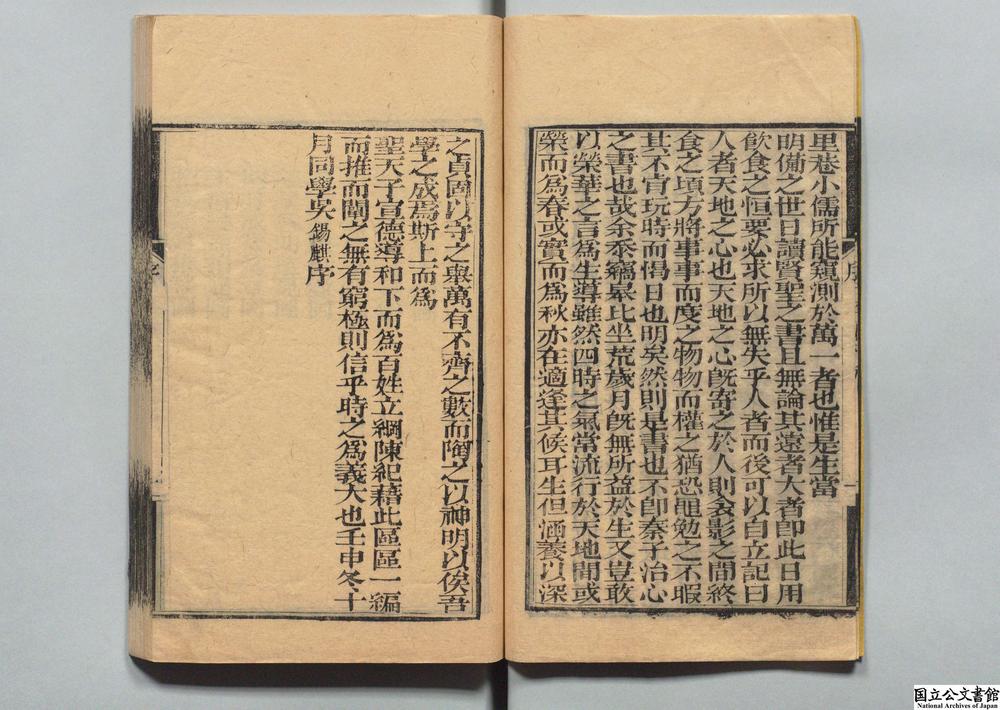 里巷小儒所能窺測於萬一者也惟是生當
明備之世日讀賢聖之書且無論其遠者大者卽此日用
飲食之恒要必求所以無失乎人者而後可以自立記曰
人者天地之心也天地之心旣寄之於人則衾影之間終
食之頃方將事事而度之物物而權之猶恐黽勉之不暇
其不肯玩時而愒日也明矣然則是書也不卽秦子治心
之書也哉余忝竊皋比坐荒歲月旣無所益於生又豈敢
以榮華之言爲生導雖然四時之氣常流行於天地間或
榮而爲春或實而爲秋亦在適逢其候耳生但涵養以深
之貞固以守之舉萬有不齊之數而陶之以神明以俟吾
學之成焉斯上而爲
聖天子宣德導和下而爲百姓立綱陳紀藉此區區一編
而推而闡之無有窮極則信乎時之爲義大也壬申冬十
月同學吳錫麒序
序
序
国立公文書館
National Archives of Japan